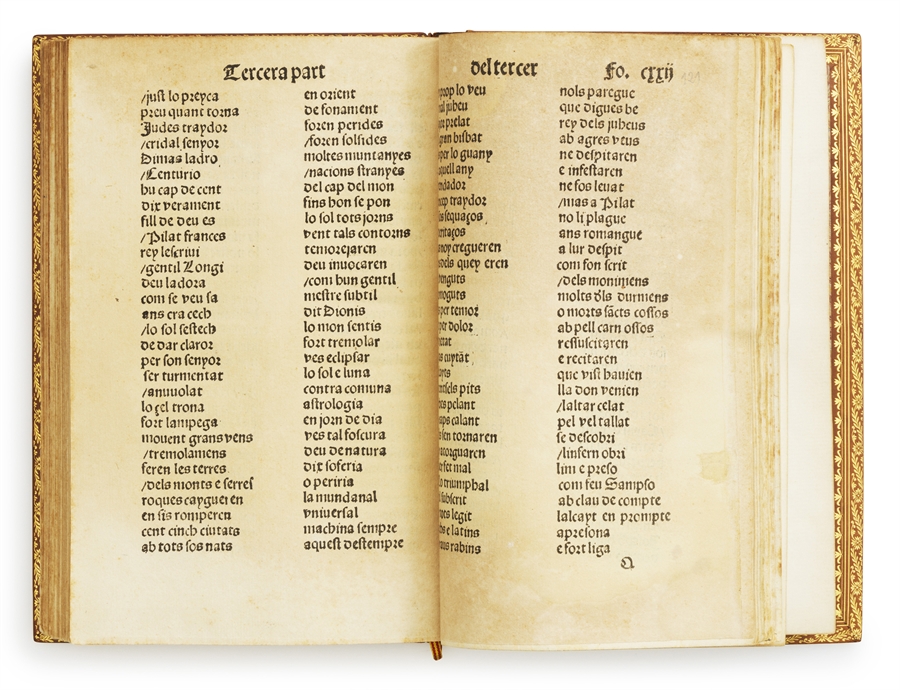 Tercera part
/just lo preyca
preu quant torna
Judes traydor
/cridal senyor
Dimas ladro
/Centurio
hu cap de cent
dix verament
fill de deu es
/Pilat frances
rey lescriui
/gentil Longi
deu ladora
com se veu sa
ans era cech
/lo sol sestech
de dar claror
per son senyor
ser turmentat
/anuuolat
lo çel trona
fort lampega
mouent grans vens
/tremolamens
feren les terres
/dels monts e serres
roques caygueren
en sis romperen
cent cinch ciutats
ab tots sos nats
en orient
de fonament
foren perides
/foren fossides
moltes muntanyes
/nacions stranyes
del cap del mon
fins hon se pon
lo sol tots jorns
vent tals contorns
temorejaren
deu inuocaren
/com hun gentil
mestre subtil
dit Dionis
lo mon sentis
fort tremolar
ves eclipsar
lo sol e luna
contra comuna
astrologia
en jorn de dia
ves tal foscura
deu de natura
dix soferia
o periria
la mundanal
vniuersal
machina sempre
aquest destempre
del tercer
Fo. cxxij
lo veu
juheu
prelat
bisbat
lo guany
traydor
sequaços
cregueren
dels quey eren
temor
dolor
pits
pelant
calant
sen tornaren
mal
triumphal
legit
e latins
rabins
nols paregue
que digues be
rey dels juheus
ab agres veus
ne despitaren
e infestaren
ne fos leuat
/mas a Pilat
no li plague
ans romangue
a lur despit
com fon scrit
/dels moniments
molts dls durmens
o morts sacts cossos
ab pell carn ossos
ressuscitaren
e recitaren
que vist hauien
lla don venien
/laltar celat
pel vel tallat
se descobri
/linfern obri
lim e preso
com feu Sampso
ab clau de compte
lalcayt en prompte
apresona
e fort liga
Q